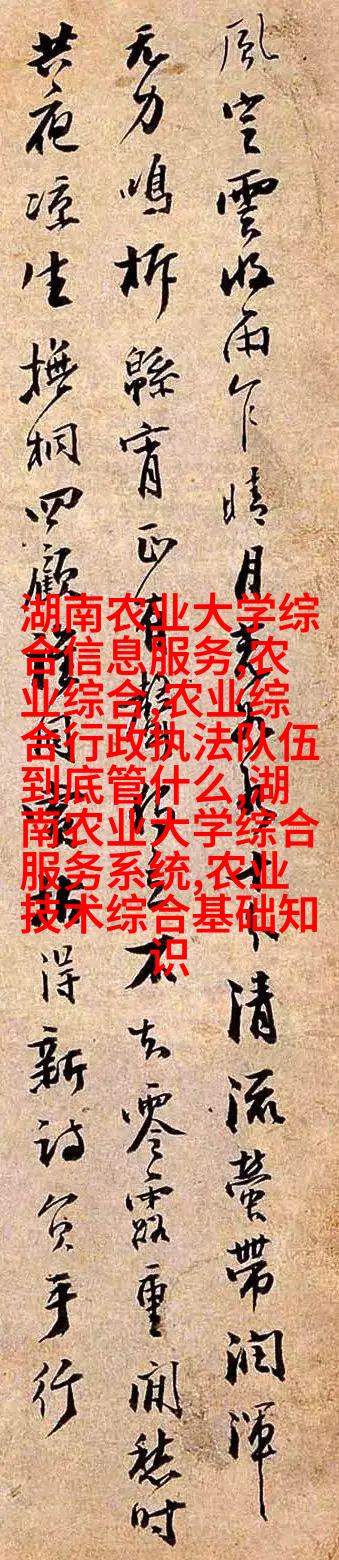 風定雲收雨乍晴月清流螢帶潤渾
无力鳴柝緜宵正有聲不知零露重閒愁時
共夜涼生撫桐四顧誰同得新詩負手行
湖南农业大学综
合信息服务,农
业综合,农业综
合行政执法队伍
到底管什么,湖
南农业大学综合
服务系统,农业
技术综合基础知
识